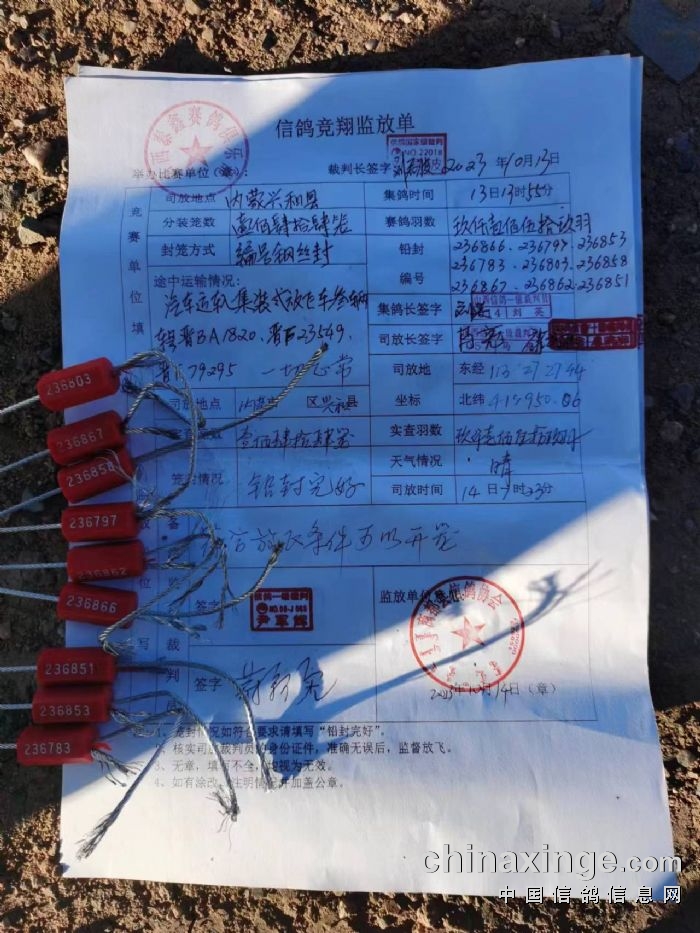 信鸽竞翔监放单
泰鑫赛鸽俱乐
信鸽国家级裁判
NO.22018
举办比赛单位(章): 裁判长签字 2023年10月13日
竞赛单位填
司放地点 内蒙兴和县 集鸽时间 13日13时55分
分装笼数 壹佰肆拾肆笼 赛鸽羽数 玖仟壹佰伍拾玖羽
封笼方式 编号钢丝封 铅封 236866.236797.236853
236783.236803.236858
编号 236867.236862.236851
途中运输情况:
汽车运轧集装式放飞车叁辆
晋BA1820.晋 23549.
79295 一切正常
集鸽长签字
山西信鸽一级裁判员
4 刘亮
司放长签字
司放地 东经 113°27 27 44
坐标 北纬
司放地点 区兴和县
笼数 壹佰肆拾肆笼 实查羽数
签封情况 铅封完好 天气情况 晴
司放时间 14日7时23分
备
放飞条件可以开笼
监
签字
信鸽一级裁判
监放单位
信鸽协会
写裁判
签字
14日(章)
1、笼封情况如符合要求请填写“铅封完好”。
2、核实司放裁判员的身份证件,准确无误后,监督放飞。
3、无章,填写不全,均视为无效。
4、如有涂改,注明情况并加盖公章。
236803
236867
236858
236797
236862
236866
236851
236853
236783
chinaxinge.com
中国信鸽信息网